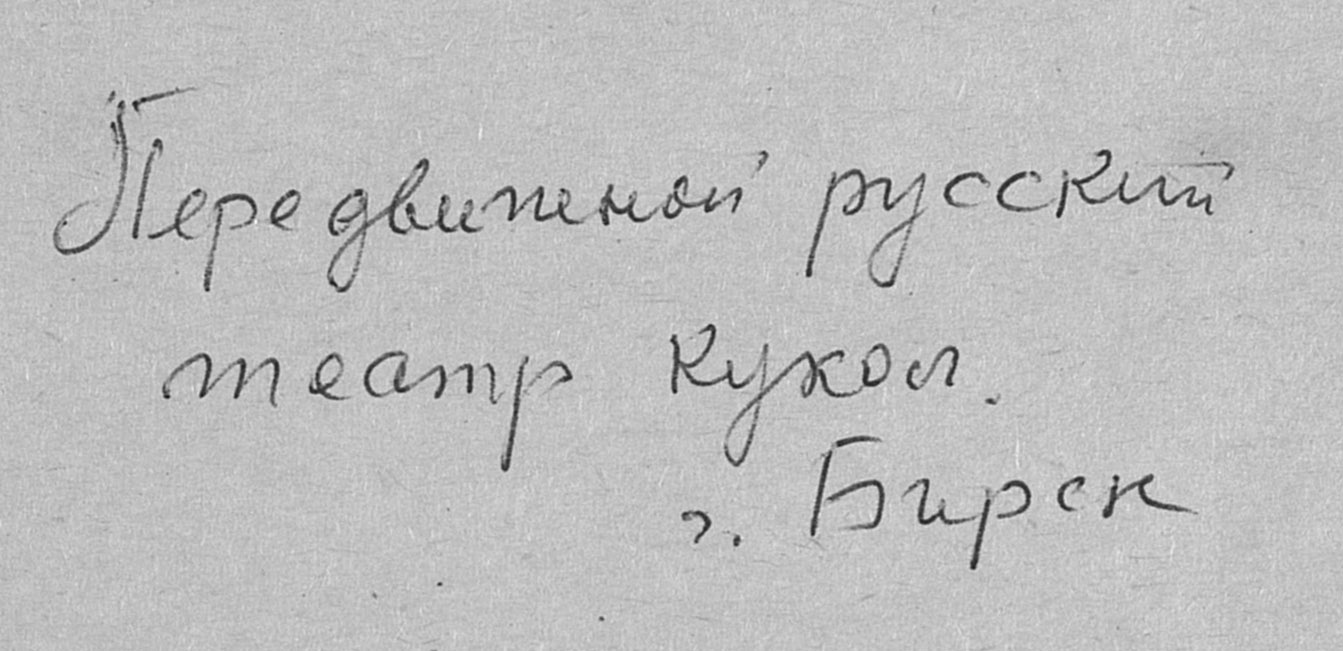 Передвижной русский
театр кукол.
г. Бирск